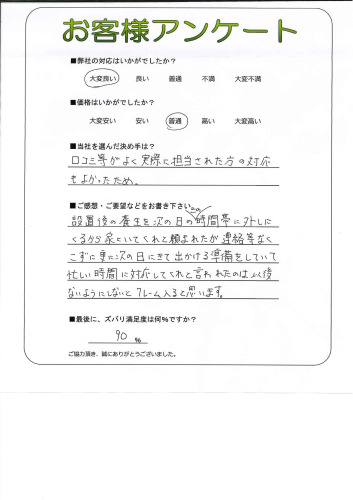 お客様アンケート
■弊社の対応はいかがでしたか?
大変良い 良い 普通 不満 大変不満
■価格はいかがでしたか?
大変安い 安い 普通 高い 大変高い
■当社を選んだ決め手は?
口コミ等がよく実際に担当された方の対応
もよかったため。
■ご感想・ご要望などをお書き下さい
設置後の養生を次の日の時間帯に外しに
くるから 置いてくれと頼まれたが連絡等なく
こずに更に次の日にきて出かける準備をしていて
忙しい時間に対応してくれと言われたのは以後
ないようにしないとクレーム入ると思います。
■最後に、ズバリ満足度は何%ですか?
90 %
ご協力頂き、誠にありがとうございました。